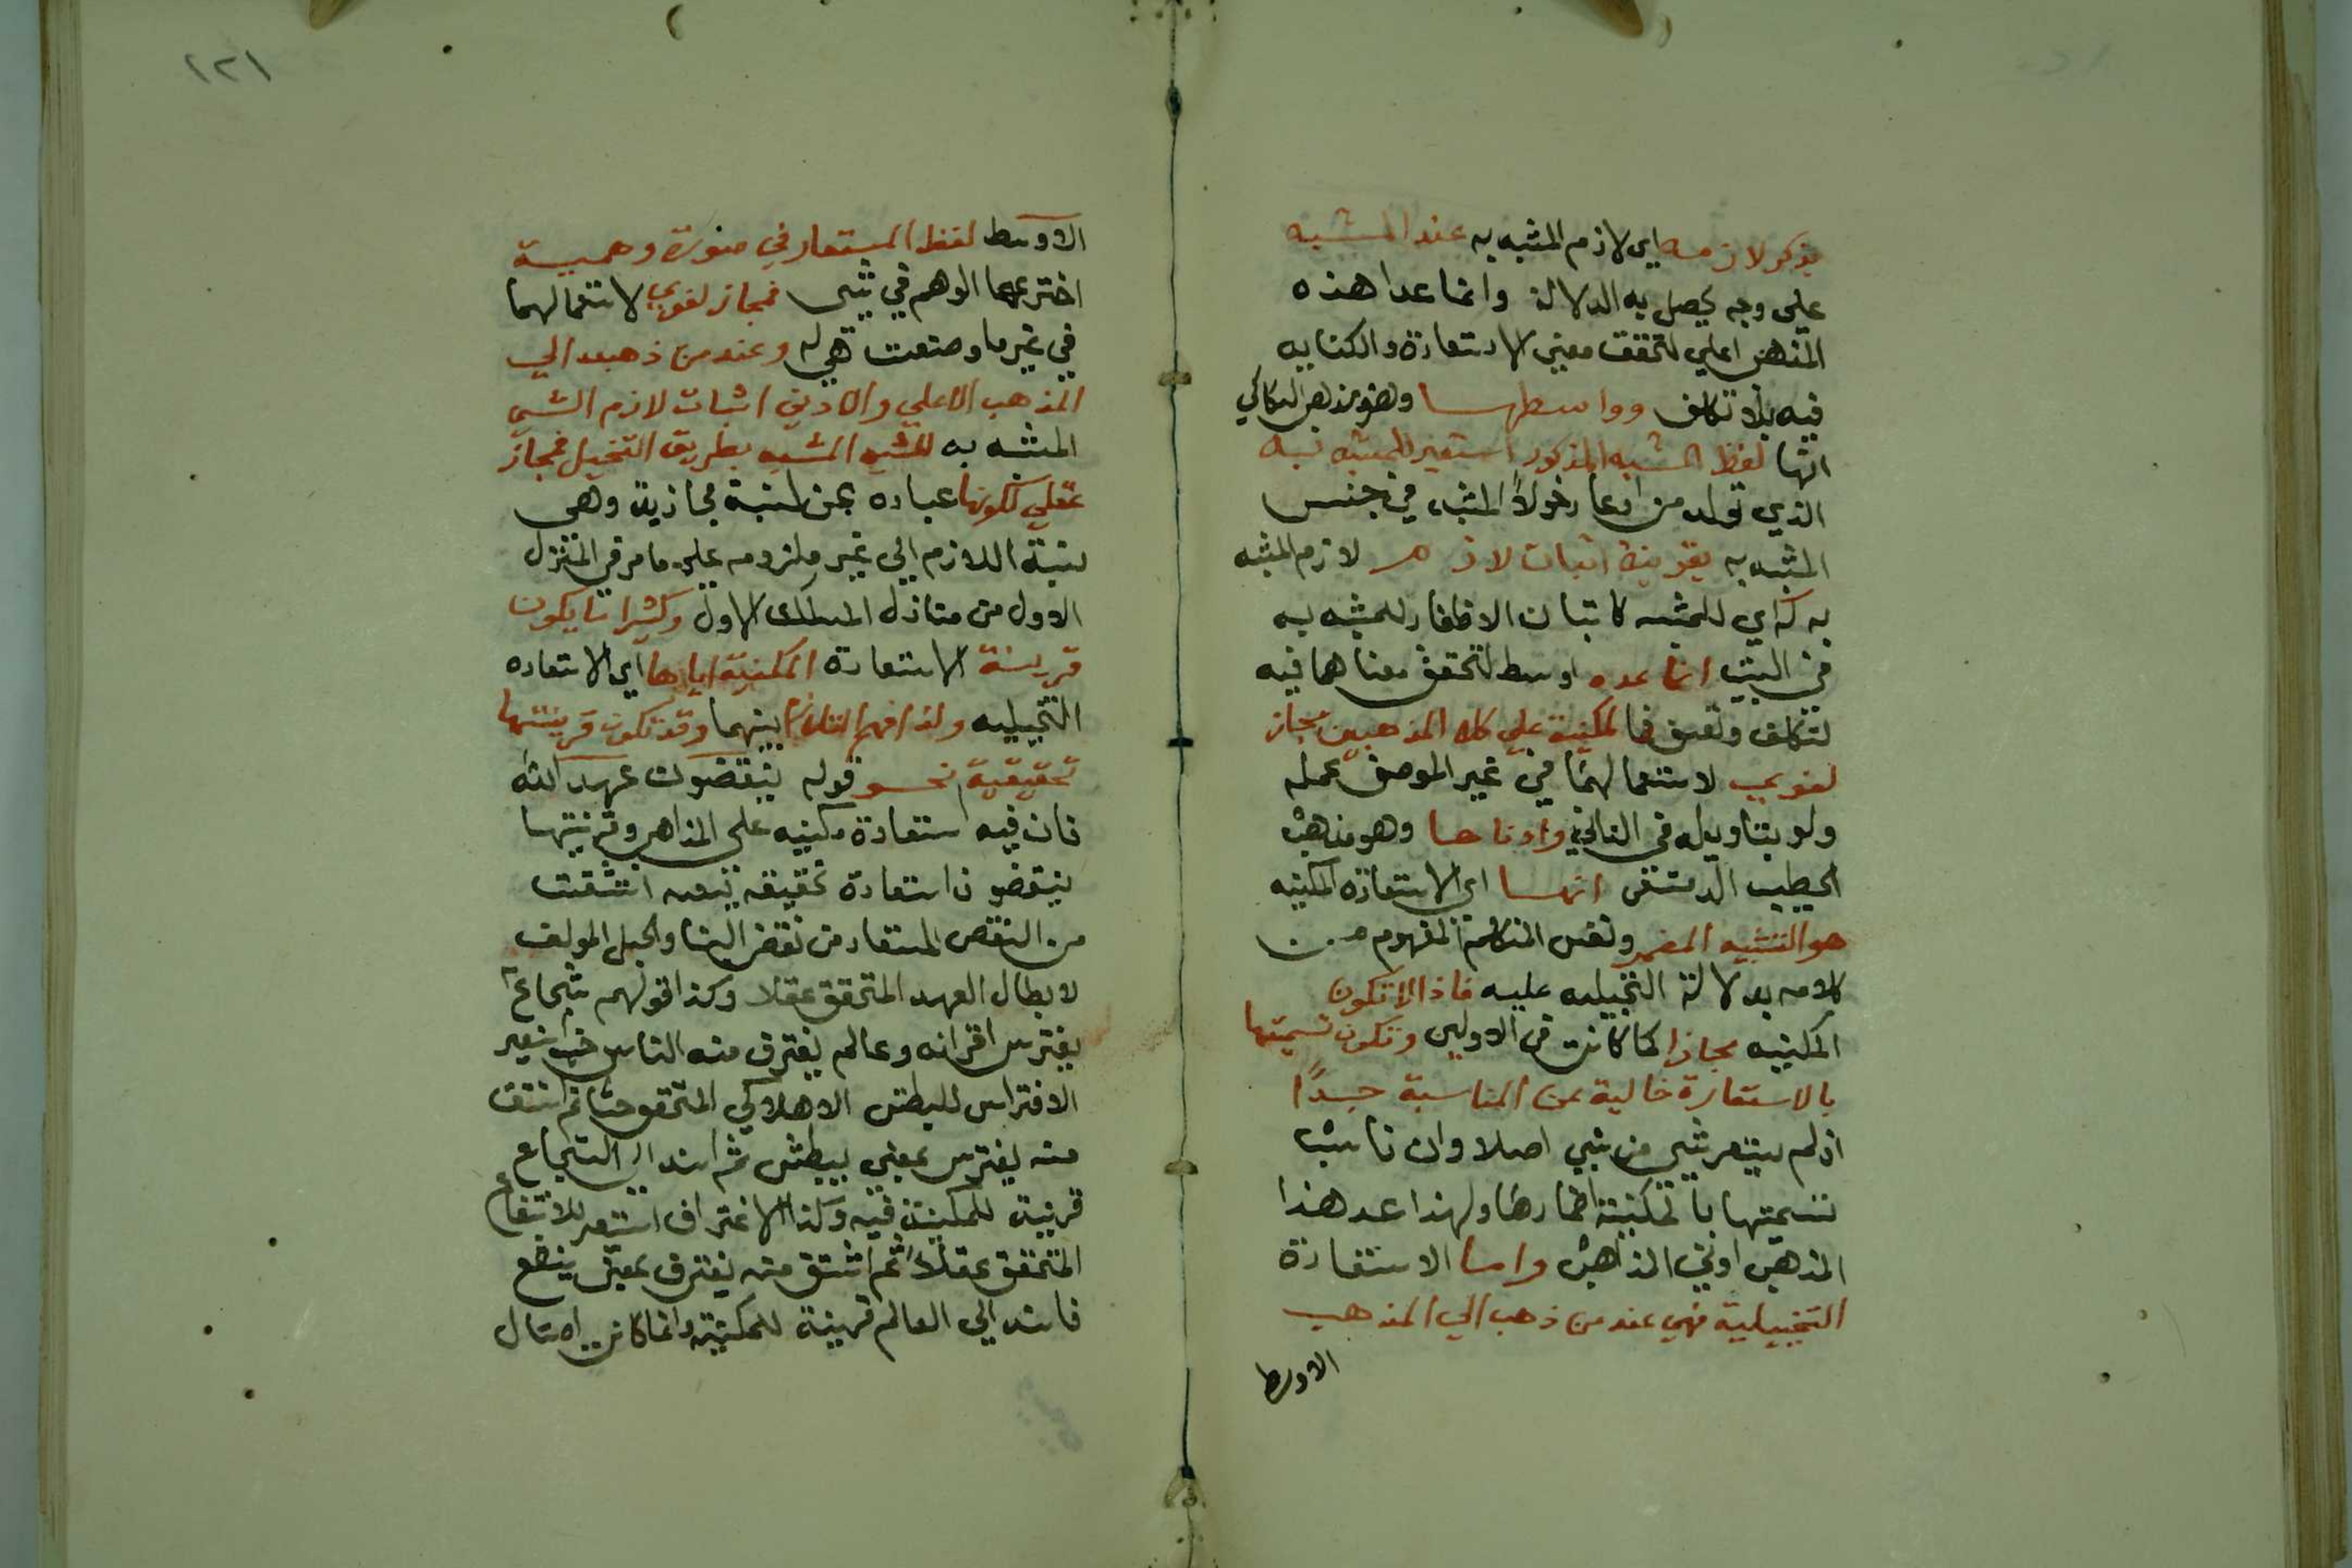 بذكر لازمه اي لازم المشبه به عند المشبه
علي وجه يحصل به الدلالة وانما عدا هذه
المذهب اعلي لتحقق معني الاستعارة والكنايه
فيه بلا تكلف وواسطها وهو مذهب السكاكي
انها لفظ المشبه المذكور استعير للمشبه به
الذي تولد من ادعا دخول المشبه في جنس
المشبه به بقرينة اثبات لازم لازم المشبه
به له اي للمشبه كاثبات الاظفار للمشبه به
في البيت انما عده اوسط لتحقق معناهما فيه
لتكلف وتعسف فالمكنية علي كلا المذهبين مجاز
لغوي لاستعمالهما في غير الموضع عمله
ولو بتاويله في الثاني وادناها وهو مذهب
الخطيب الدمشقي انها اي الاستعارة المكنيه
هو التشبيه المضمر ونفس المتكلم المفهوم من
كلامه بدلالة التخييليه عليه فاذا لا تكون
المكنيه مجازا كما كانت في الاولين وتكون تسميتها
بالاستعارة خالية عن المناسبة جدًا
اذ لم يستعر شي من شي اصلا وان ناسب
تسميتها بالمكنية اظمارها ولهذا عد هذا
المذهب ادني المذاهب واما الاستعارة
التخييلية فهي عند من ذهب الي المذهب
الاوسط
١٢١
الاوسط لفظ المستعار في صورة وهمية
اخترعها الوهم في شي فمجاز لغوي لاستعمالها
في غير ما وضعت هي له وعند من ذهب الي
المذهب الاعلي والادني اثبات لازم الشي
المشبه به للشي المشبه بطريق التخيل فمجاز
عقلي لكونها عباره عن نسبة مجازية وهي
نسبة اللازم الي غير ملزومه علي ما مر في المنزل
الاول من منازل المسلك الاول وكثيرا ما يكون
قرينة الاستعارة المكنية اياها اي الاستعاره
التخييليه ولذا فهم التلازم بينهما وقد تكون قرينتها
تحقيقية نحو قوله ينقضون عهد الله
فان فيه استعارة مكنيه علي المذاهب وقرينتها
ينقضون استعارة تحقيقه تبعيه اشتقت
من النقض المستعار من نقض البنا والحبل المولف
لابطال العهد المتحقق عقلا وكذا قولهم شجاع
يفترس اقرانه وعالم يغترف منه الناس حيث استعير
الافتراس للبطش الاهلاكي المتحقق حسا ثم اشتق
منه يفترس بمعني يبطش ثم اسند الي الشجاع
قرينة للمكنية فيه وكذا الاغتراف استعير للانتفاع
المتحقق عقلا ثم اشتق منه يغترف بمعني ينتفع
فاسند الي العالم قرينة للمكنية وانما كانت امثال